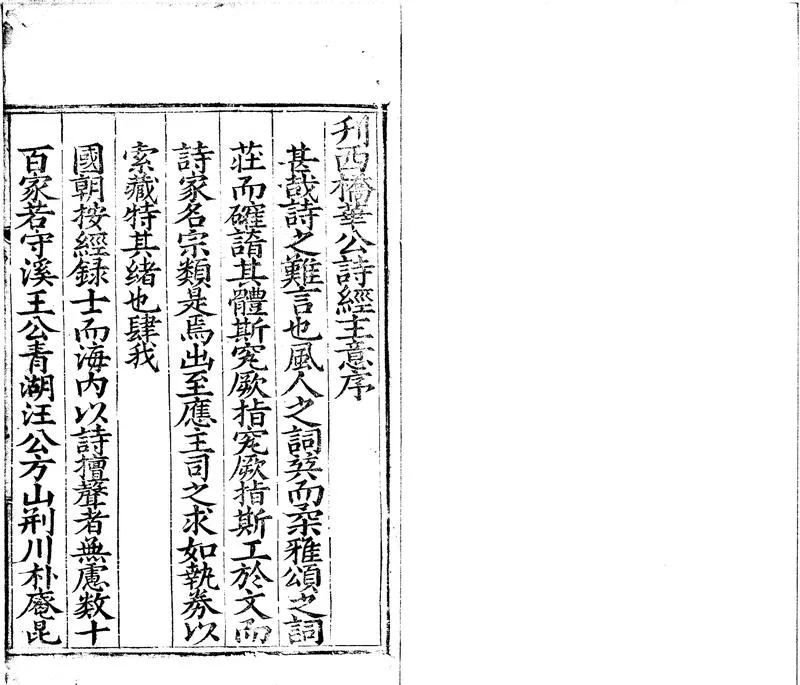 刋西橋華公詩經主意序
甚哉詩之難言也風人之詞葩而柔雅頌之詞
莊而確諳其體斯究厥指究厥指斯工於文而
詩家名宗類是焉出至應主司之求如執劵以
索藏特其緒也肆我
國朝按經録士而海内以詩擅聲者無慮数十
百家若守溪王公青湖汪公方山荆川朴菴昆